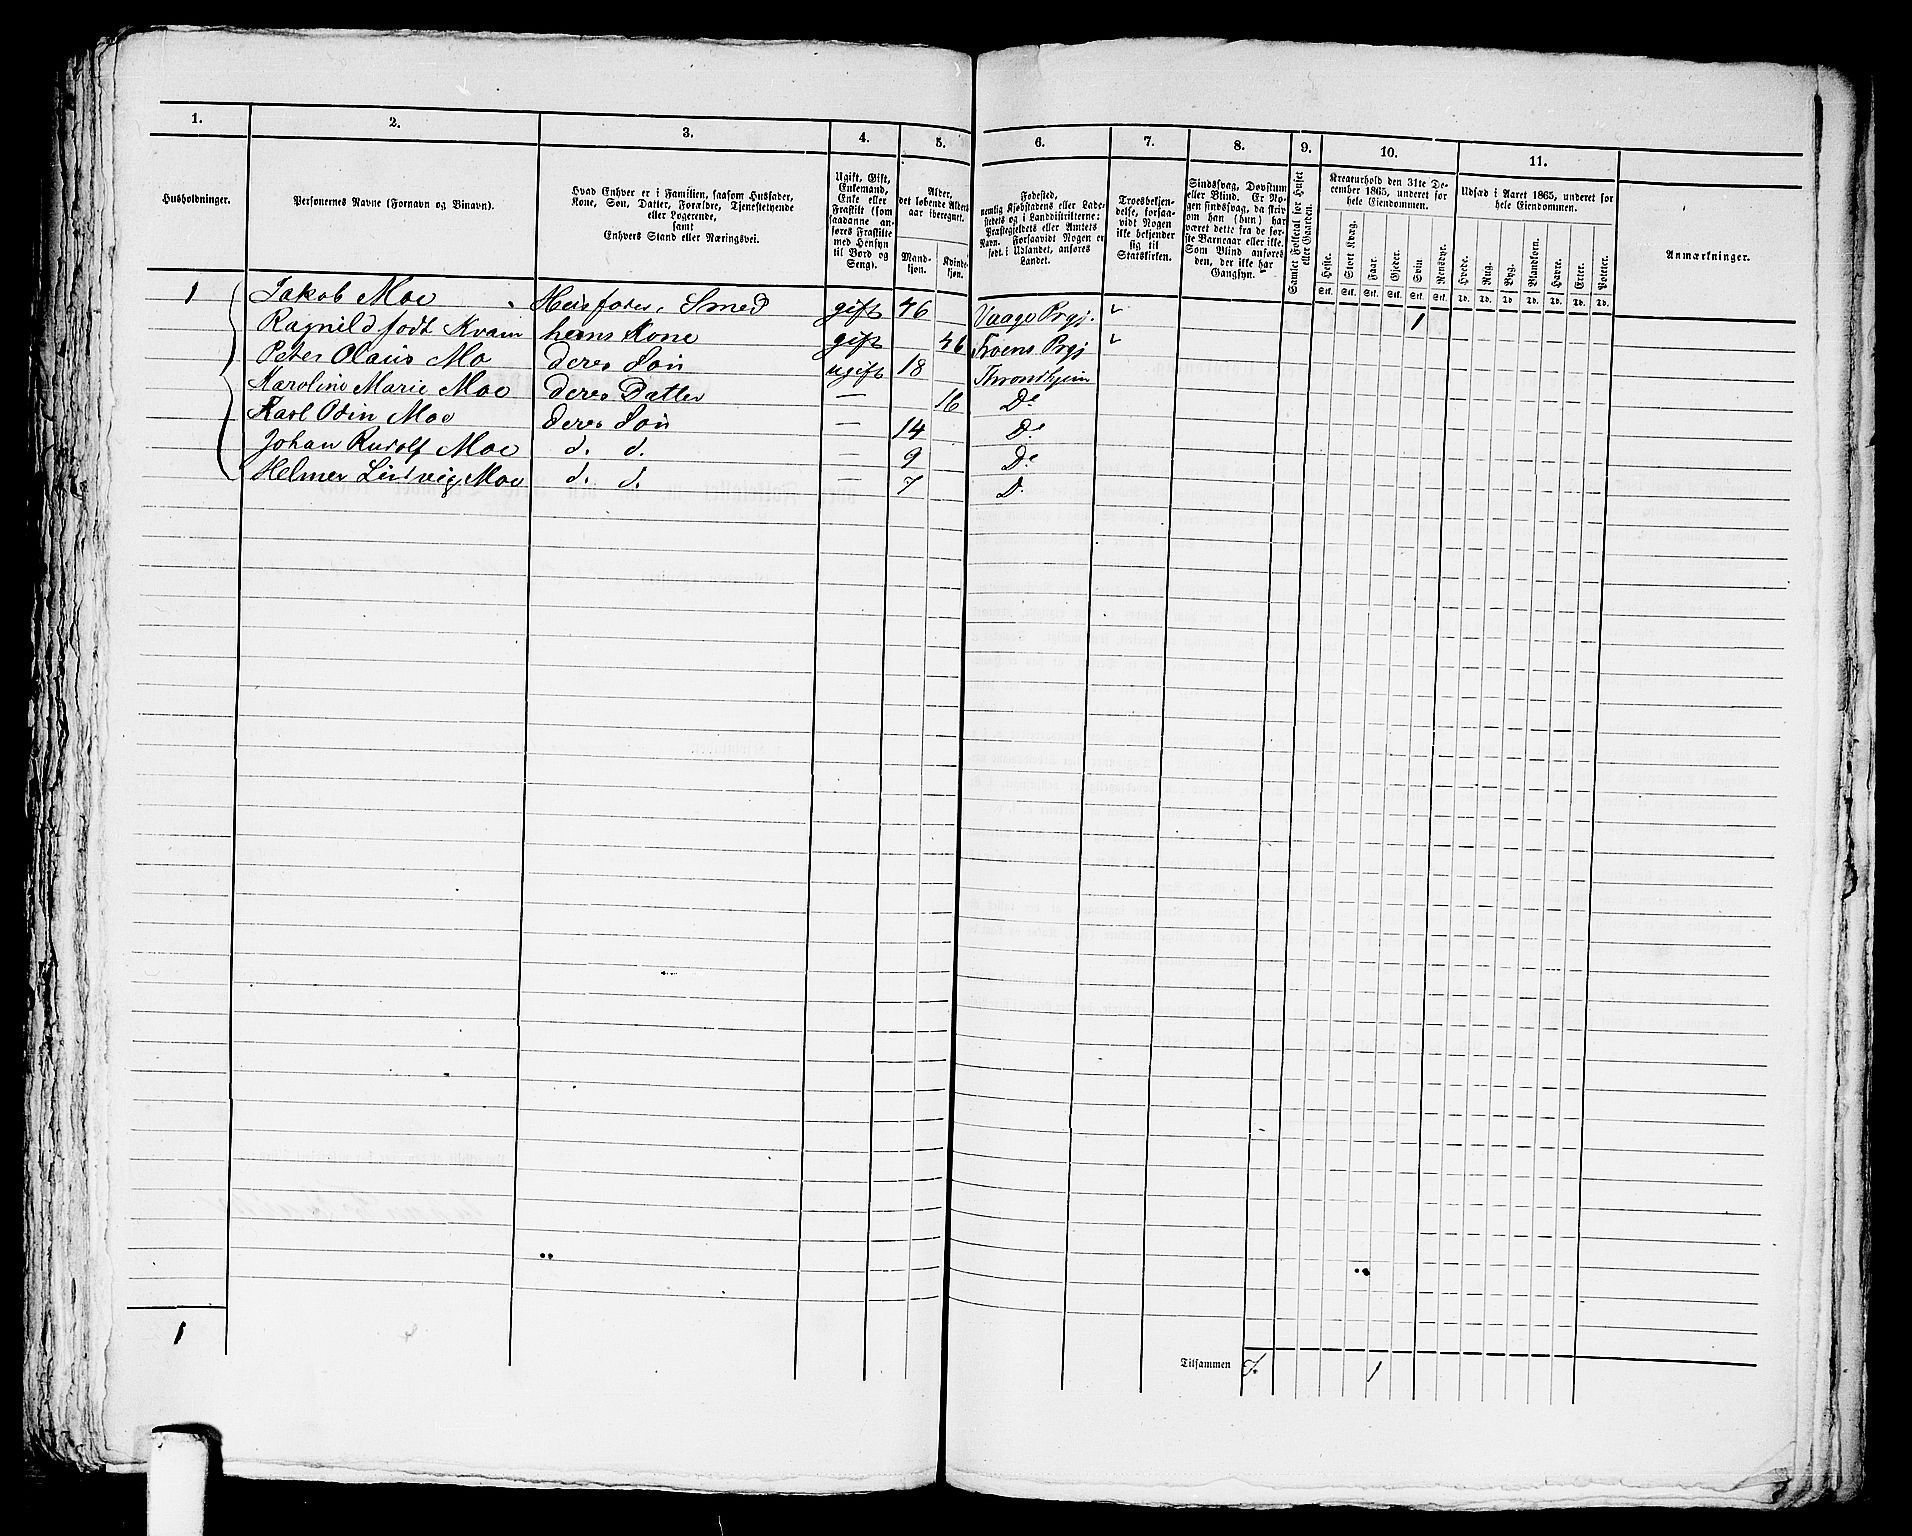 1. 2. 3. 4. 5. 6. 7. 8. 9. 10. 11.
Husholdninger.
Personernes Navne (Fornavn og Binavn).
Hvad Enhver er i Familien, saasom Husfader,
Kone, Søn, Datter, Forældre, Tjenestetyende
eller Logerende,
samt
Enhvers Stand eller Næringsvei.
Ugift, Gift,
Enkemand,
Enke eller
Fraskilt (som
saadanne an-
føres Fraskilte
med Hensyn
til Bord og
Seng).
Alder,
det løbende Alders-
aar iberegnet.
Mand-
kjøn.
Kvinde-
kjøn.
Fødested,
nemlig Kjøbstadens eller Lade-
stedets og i Landdistrikterne:
Præstegjeldets eller Amtets
Navn. Forsaavidt Nogen er
født i Udlandet, anføres
Landet.
Troesbekjen-
delse, forsaa-
vidt Nogen
ikke bekjender
sig til
Statskirken.
Sindssvag, Døvstum
eller Blind. Er No-
gen sindssvag, da skriv
om han (hun) har
været dette fra de før-
ste Barneaar eller ikke.
Som Blind anføres
den, der ikke har
Gangsyn.
Samlet Folketal for Huset
eller Gaarden.
Kreaturhold den 31te De-
cember 1865, underet for
hele Eiendommen.
Heste. Stort Kvæg. Faar. Gjeder. Svin. Rensdyr.
Stk. Stk. Stk. Stk. Stk. Stk.
Udsæd i Aaret 1865, underet for
hele Eiendommen.
Hvede. Rug. Byg. Blandkorn. Havre. Erter. Poteter.
Td. Td. Td. Td. Td. Td. Td.
Anmærkninger.
1 Jakob Moe Husfader, Smed gift 46 Vaage Prgj. 1
Ragnild født Kvam hans Kone gift 46 Froens Prgj
Peter Olaus Mo deres Søn ugift 18 Throndhjem
Karoline Marie Moe deres Datter — 16 Do
Karl Odin Moe deres Søn — 14 Do
Johan Rudolf Moe d. d. — 9 Do
Helmer Ludvig Moe d. d. — 7 D.
1
Tilsammen 7. 1